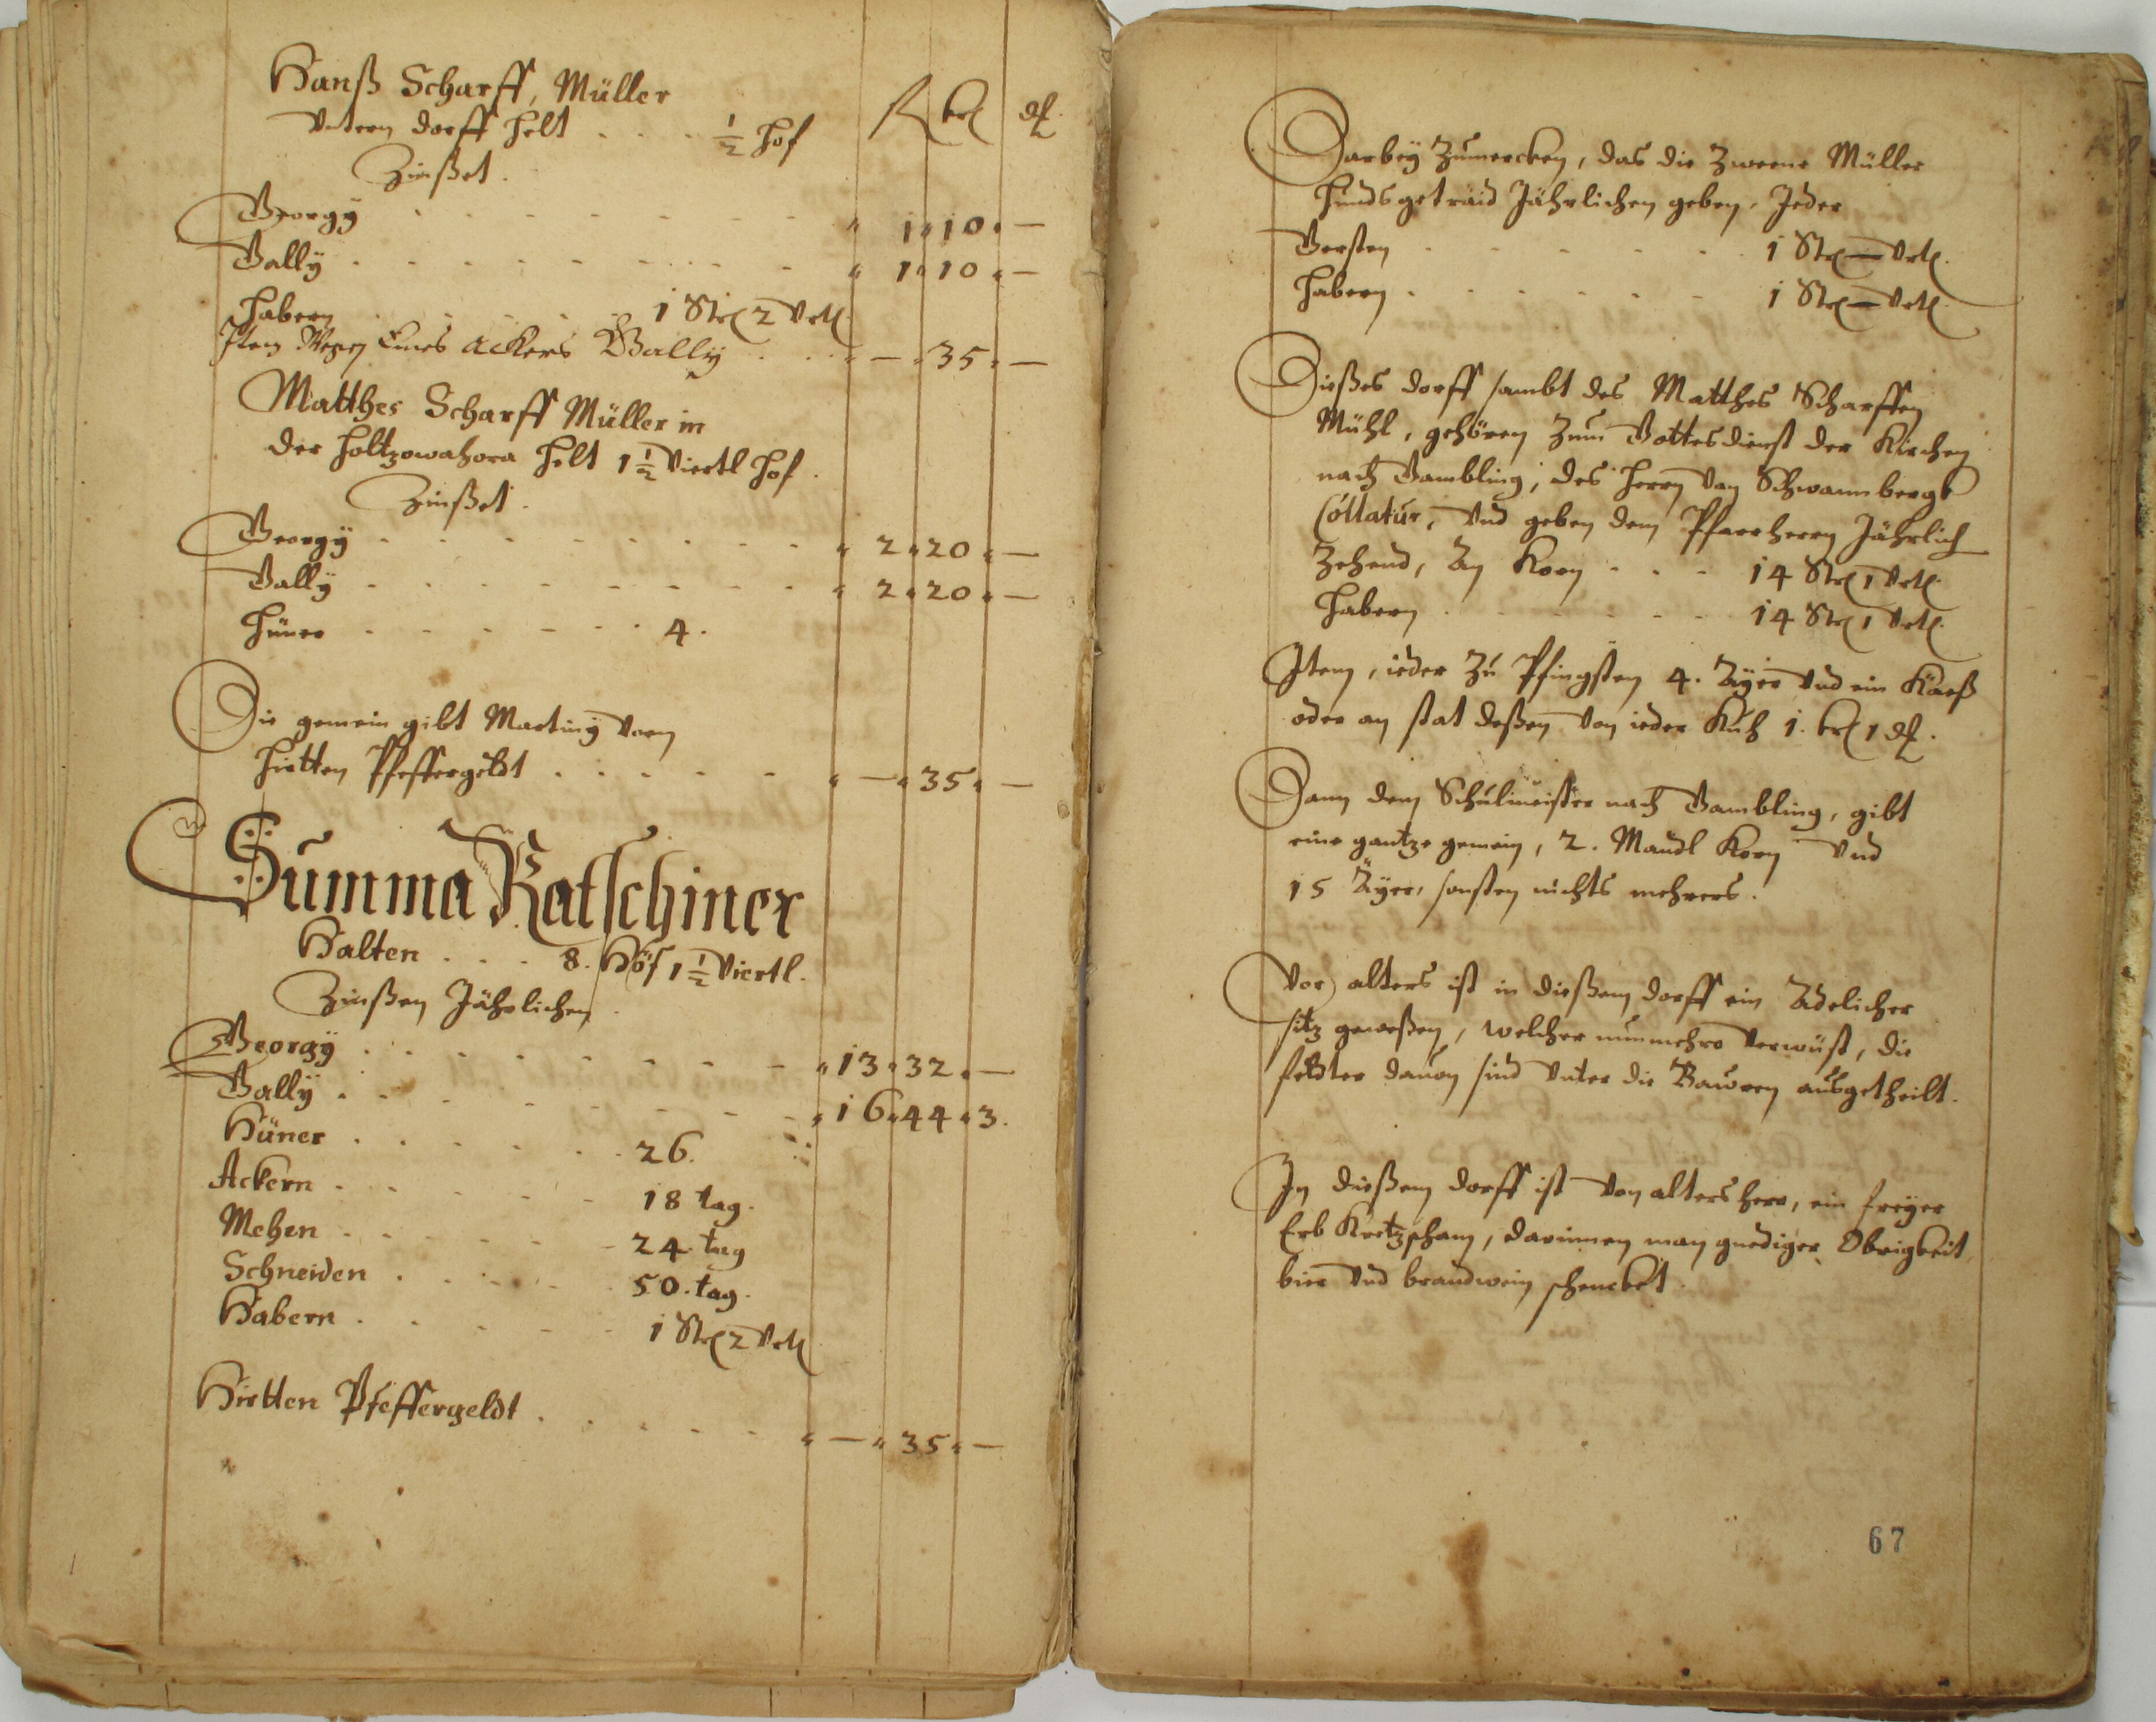 Hanß Scharff, Müller
Untern dorff helt . . . . ½ Hof
fl kr ₰
Zinßet.
Georgÿ . . . . . . . . " 1 " 10 " —
Gallÿ . . . . . . . . " 1 " 10 " —
Habern . . . . . 1 Str 2 Vrtl
Item Wegen Eines Ackers Gallÿ . . . " — " 35 " —
Matthes Scharff Müller in
der Holtzowahora helt 1½ Viertl Hof.
Zinßet.
Georgÿ . . . . . . . . " 2 " 20 " —
Gallÿ . . . . . . . . " 2 " 20 " —
Hüner . . . . . . . 4.
Die gemein gibt Martinÿ vom
Hirtten Pfeffergeldt . . . . . " — " 35 " —
Summa Ratschiner
Halten . . . 8. Höf 1½ Viertl.
Zinßen Jährlichen.
Georgÿ . . . . . . . . " 13 " 32 " —
Gallÿ . . . . . . . . " 16 " 44 " 3.
Hüner . . . . . . 26.
Ackern . . . . . . 18 tag.
Mehen . . . . . . 24. tag
Schneiden . . . . . 50. tag.
Habern . . . . . . 1 Str 2 Vrtl
Hirtten Pfeffergeldt . . . . . " — " 35 " —
Darbeÿ Zumercken, das die Zweene Müller
Hundsgetraid Jährlichen geben, Jeder
Gersten . . . . . . 1 Str — Vrtl.
Habern . . . . . . 1 Str — Vrtl.
Dießes dorff sambt des Matthes Scharffen
Mühl, gehören Zum Gottesdienst der Kirchen
nach Gambling, des Herrn Von Schwambergk
Collatur, Vnd geben dem Pfarrherrn Jährlich
Zehend, An Korn . . . 14 Str 1 Vrtl.
Habern . . . . . . 14 Str 1 Vrtl.
Item, ieder Zu Pfingsten 4. Aÿer Vnd ein Kaeß
oder an stat deßen Von ieder Kuh 1. kr 1 ₰.
Dann dem Schulmeister nach Gambling, gibt
eine gantze gemein, 2. Mandl Korn Vnd
15 Aÿer, sonsten nichts mehrers.
Vor alters ist in dießem dorff ein Adelicher
sitz geweßen, welcher nunmehro Verwüst, die
feldter dauon sind Vnter die Bauren ausgetheilt.
In dießem dorff ist Von alters hero, ein freÿer
Erb Kretzscham, darinnen man gnediger Obrigkeit
bier Vnd brandwein schencket.
67